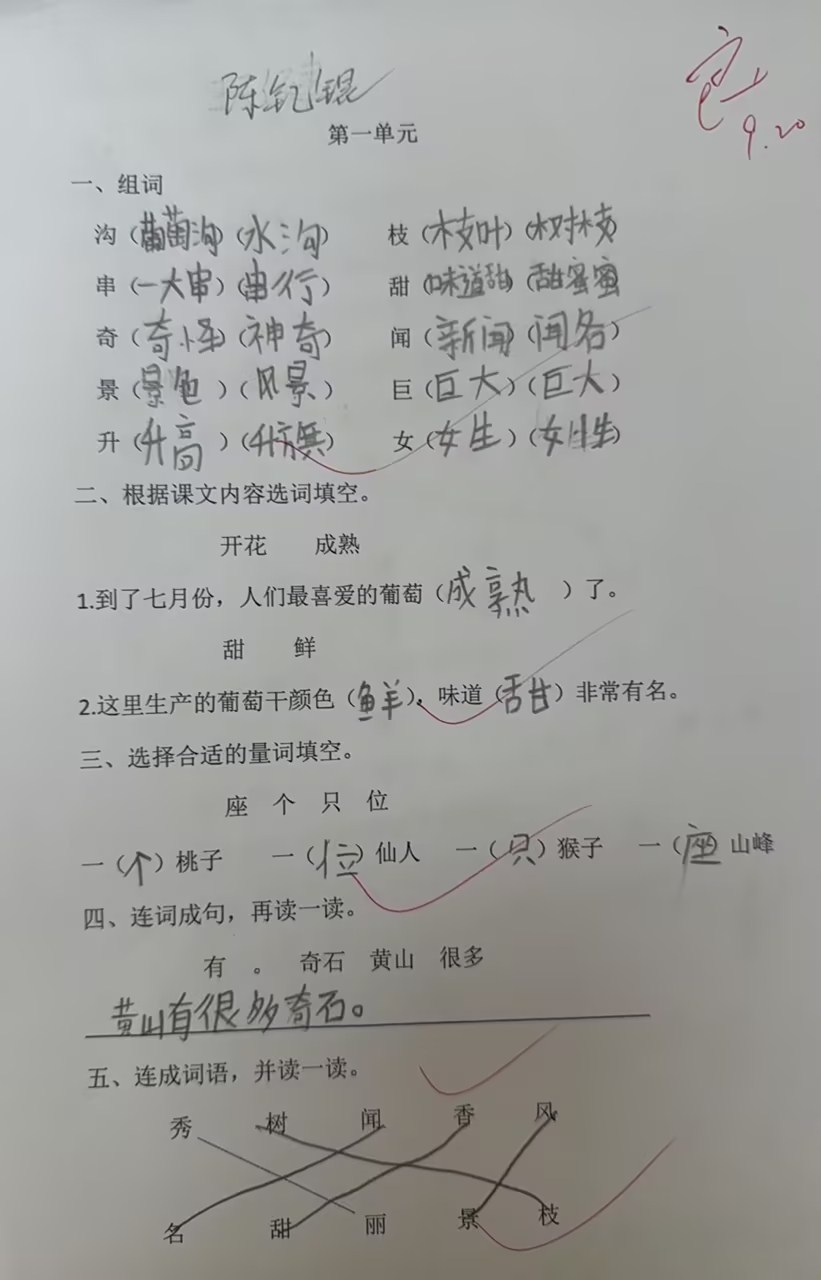 陈钇锟
第一单元
9.20
一、组词
沟（葡萄沟）（水沟） 枝（枝叶）（树枝）
串（一大串）（串行） 甜（味道甜）（甜蜜蜜）
奇（奇怪）（神奇） 闻（新闻）（闻名）
景（景色）（风景） 巨（巨大）（巨大）
升（升高）（升旗） 女（女生）（女生）
二、根据课文内容选词填空。
开花 成熟
1.到了七月份，人们最喜爱的葡萄（成熟）了。
甜 鲜
2.这里生产的葡萄干颜色（鲜），味道（甜）非常有名。
三、选择合适的量词填空。
座 个 只 位
一（个）桃子 一（位）仙人 一（只）猴子 一（座）山峰
四、连词成句，再读一读。
有 。 奇石 黄山 很多
黄山有很多奇石。
五、连成词语，并读一读。
秀 树 闻 香 风
名 甜 丽 景 枝